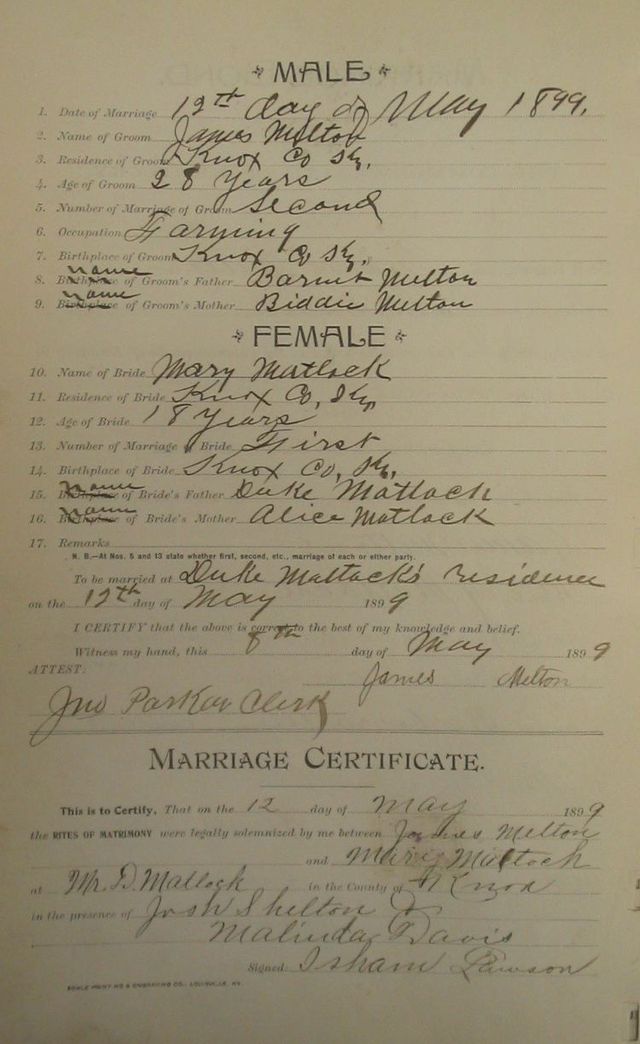 MALE
1. Date of Marriage 12th day of May 1899.
2. Name of Groom James Melton
3. Residence of Groom Knox Co Ky.
4. Age of Groom 28 Years
5. Number of Marriage of Groom Second
6. Occupation Farming
7. Birthplace of Groom Knox Co Ky.
8. Birthplace name of Groom's Father Barnit Melton
9. Birthplace name of Groom's Mother Biddie Melton
FEMALE
10. Name of Bride Mary Matlock
11. Residence of Bride Knox Co, Ky,
12. Age of Bride 18 Years
13. Number of Marriage of Bride First
14. Birthplace of Bride Knox Co, Ky.
15. Birthplace name of Bride's Father Duke Matlock
16. Birthplace name of Bride's Mother Alice Matlock
17. Remarks
N. B.—At Nos. 5 and 13 state whether first, second, etc., marriage of each or either party.
To be married at Duke Matlock's residence
on the 12th day of May 1899
I CERTIFY that the above is correct to the best of my knowledge and belief.
Witness my hand, this 8th day of May 1899
ATTEST: James Melton
Jno Parker Clerk
MARRIAGE CERTIFICATE.
This is to Certify, That on the 12 day of May 1899
the RITES OF MATRIMONY were legally solemnized by me between James Melton
and Mary Matlock
at Mr. D. Matlock in the County of Knox
in the presence of Josh Shelton
Malinda Davis
Signed Isham Lawson